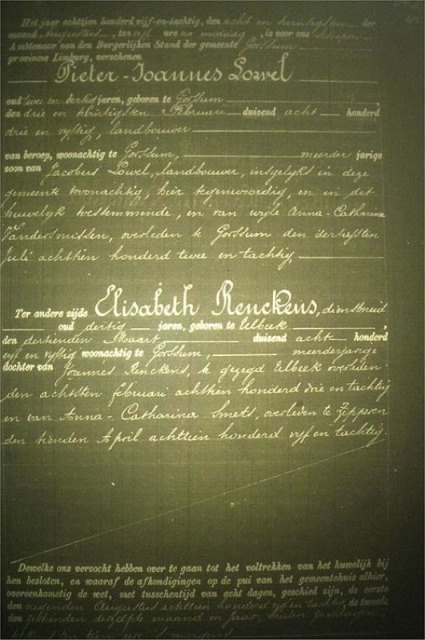 Het jaar achttien honderd vijf-en-tachtig, den acht en twintigsten der
maand Augustus, ten vijf ure na middag, is voor ons
Ambtenaar van den Burgerlijken Stand der gemeente Gorssum
provincie Limburg, verschenen
Pieter-Joannes Lowel
oud twee en dertig jaren, geboren te Gorssum
den drie en twintigsten Februari duisend acht honderd
drie en vyftig, landbouwer
van beroep, woonachtig te Gorssum, meerder jarige
soon van Jacobus Lowel, landbouwer, insgelyks in deze
gemeente woonachtig, hier tegenwoordig, en in dit
huwelyk toestemmende, en van wyle Anna-Catharina
Vandersmissen, overleden te Gorssum den dertigsten
Juli achttien honderd twee en tachtig
Ter andere zijde Elisabeth Renckens, dienstmeid
oud dertig jaren, geboren te Uelbeek
den dertienden Maart duisend acht honderd
vyf en vyftig woonachtig te Gorssum, meerderjarige
dochter van Joannes Renckens, te gezegd Eelbeek overleden
den achtsten februari achttien honderd drie en tachtig
en van Anna-Catharina Smets, overleden te Zepperen
den tienden April achttien honderd vyf en tachtig
Dewelke ons verzocht hebben over te gaan tot het voltrekken van het huwelijk bij
hen besloten, en waaraf de afkondigingen op de pui van het gemeentehuis alhier,
overeenkomstig de wet, met tusschentijd van acht dagen, geschied zijn, de eerste
den negenden Augustus achttien honderd vyf en tachtig de tweede
den zestienden derzelfde maand en jaar,